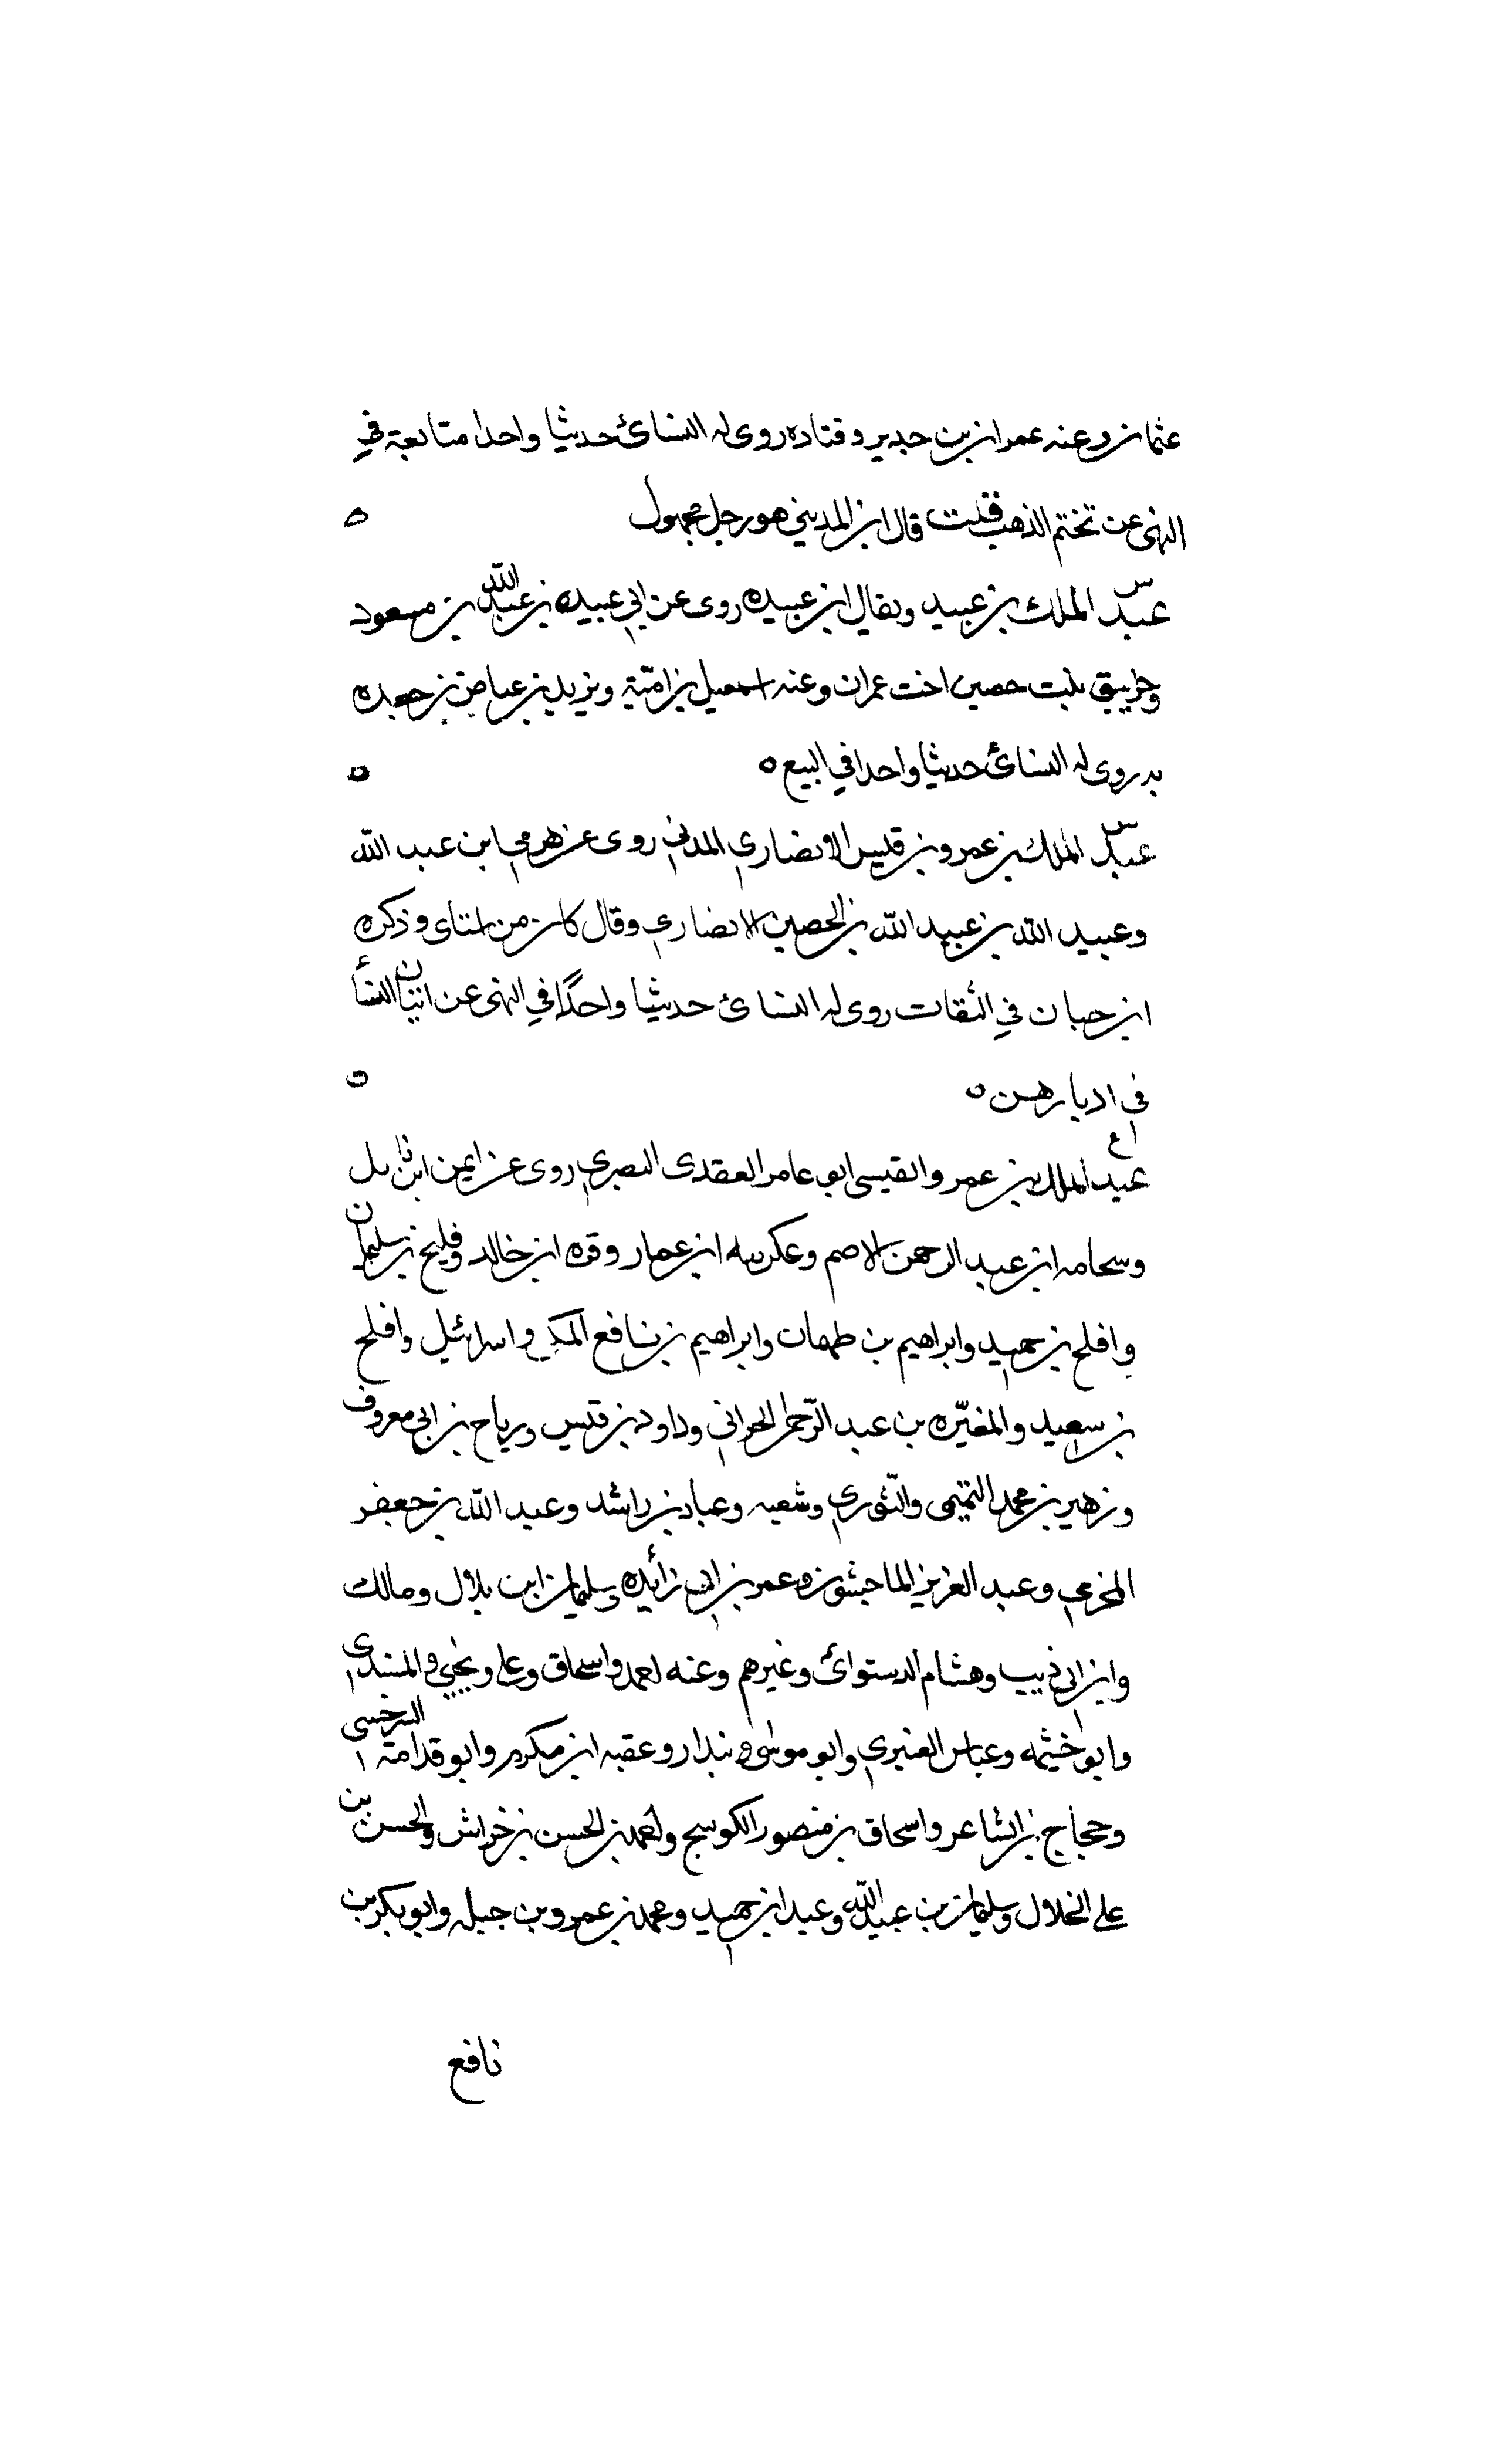 عثمان وعنه عمران بن حدير وقتاده روى له النسائ حديثا واحدا متابعة في
النهى عن تختم الذهب قلت قال ابن المديني هو رجل مجهول ه
س
عبد الملك بن عبيد ويقال ابن عبيده روى عن ابي عبيده بن عبد الله بن مسعود
وخرينق بنت حصين اخت عمران وعنه اسمعيل بن امية ويزيد بن عياض بن جعدبه
روى له النسائ حديثا واحدا في البيع ه ه
س
عبد الملك بن عمرو بن قيس الانصاري المدني روى عن هرمي ابن عبد الله
وعبيد الله بن عبيد الله بن الحصين الانصاري وقال كان من اسناى وذكره
ابن حبان في الثقات روى له النسائ حديثا واحدًا في النهى عن اتيان النسأ
فى ادبارهن ه ه
ع
عبد الملك بن عمرو القيسى ابو عامر العقدى البصري روى عن ايمن ابن نابل
وسحامه ابن عبد الرحمن الاصم وعكرمه ابن عمار وقره ابن خالد وفليح بن سليمان
وافلح بن حميد وابراهيم بن طهمان وابراهيم بن نافع المكي واسرائيل وافلح
بن سعيد والمغيّره بن عبد الرّحمن الحراني وداود بن قيس ورباح بن ابى معروف
وزهير بن محمد التميمى والثّوري وشعبه وعباد بن راشد وعبد الله بن جعفر
المخرمي وعبد العزيز الماجشون وعمر بن ابي زأيده وسليمان ابن بلال ومالك
وابن ابي ذيب وهشام الدستوائ وغيرهم وعنه احمد واسحاق وعلى ويحيى والمسندى
وابو خيثمه وعباس العنبري وابو موسى وبندار وعقبه ابن مكرم وابو قدامة السرخسى
وحجاج بن الشاعر واسحاق بن منصور الكوسج واحمد بن الحسن بن خراش والحسن بن
على الخلال وسليمان بن عبيد الله وعبد ابن حميد ومحمد بن عمرو بن جبله وابو بكر بن
نافع